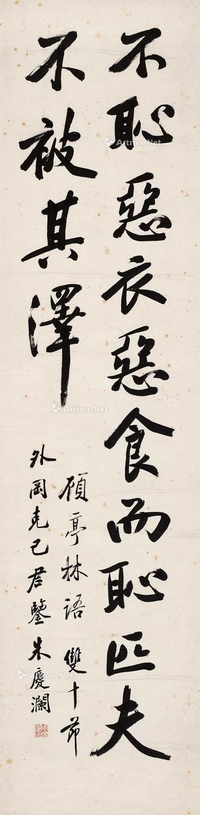 不恥惡衣惡食而恥匹夫
不被其澤
顧亭林語 雙十節
外岡克己君鑒 朱慶瀾